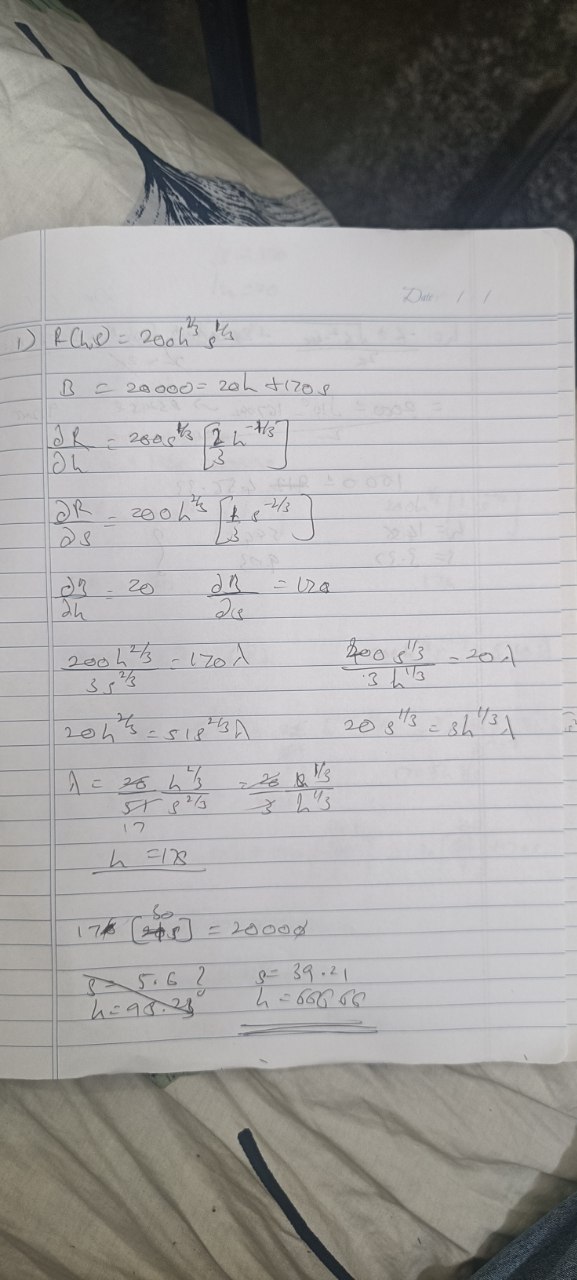 Date / /
1) R(h,s) = 200h^{2/3} s^{1/3}
B = 20000 = 20h + 170s
∂R/∂h = 200s^{1/3} [2/3 h^{-1/3}]
∂R/∂s = 200h^{2/3} [1/3 s^{-2/3}]
∂B/∂h = 20   ∂B/∂s = 170
200h^{2/3}/3s^{2/3} = 170λ   400 s^{1/3}/3 h^{1/3} = 20λ
20h^{2/3} = 51s^{2/3}λ   20s^{1/3} = 3h^{1/3}λ
λ = 20/51 h^{2/3}/s^{2/3} = 20/3 s^{1/3}/h^{1/3}
17
h = 17s
30
17 [s] = 20000
s = 5.6 ?   s = 39.21
h = 95.23   h = 666.66